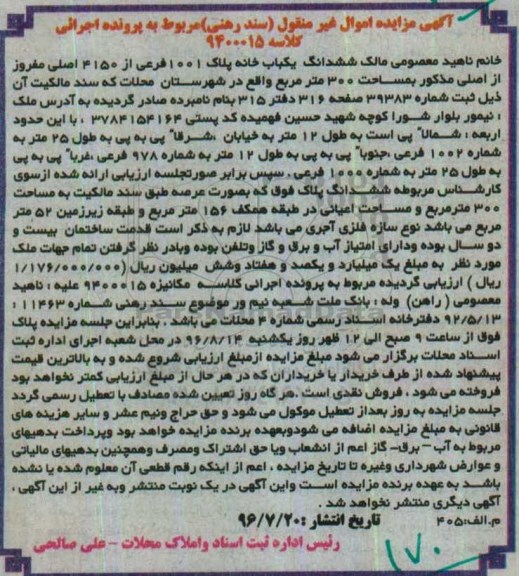 آگهی مزایده اموال غیر منقول (سند رهنی)مربوط به پرونده اجرائی
کلاسه ۹۴۰۰۰۱۵
خانم ناهید معصومی مالک ششدانگ یکباب خانه پلاک ۱۰۰۱ فرعی از ۴۱۵۰ اصلی مفروز
از اصلی مذکور بمساحت ۳۰۰ متر مربع واقع در شهرستان محلات که سند مالکیت آن
ذیل ثبت شماره ۳۹۳۸۳ صفحه ۳۱۶ دفتر ۳۱۵ بنام نامبرده صادر گردیده به آدرس ملک
: نیمور بلوار شورا کوچه شهید حسین فهمیده کد پستی ۳۷۸۴۱۵۴۱۶۴ ، با این حدود
اربعه : شمالاً پی است به طول ۱۲ متر به خیابان ،شرقاً پی به پی به طول ۲۵ متر به
شماره ۱۰۰۲ فرعی ،جنوباً پی به پی به طول ۱۲ متر به شماره ۹۷۸ فرعی ،غرباً پی به پی
به طول ۲۵ متر به شماره ۱۰۰۰ فرعی . سپس برابر صورتجلسه ارزیابی ارائه شده ازسوی
کارشناس مربوطه ششدانگ پلاک فوق که بصورت عرصه طبق سند مالکیت به مساحت
۳۰۰ مترمربع و مساحت اعیانی در طبقه همکف ۱۵۶ متر مربع و طبقه زیرزمین ۵۲ متر
مربع می باشد نوع سازه فلزی آجری می باشد لازم به ذکر است قدمت ساختمان بیست و
دو سال بوده ودارای امتیاز آب و برق و گاز وتلفن بوده وبادر نظر گرفتن تمام جهات ملک
مورد نظر به مبلغ یک میلیارد و یکصد و هفتاد وشش میلیون ریال (۱/۱۷۶/۰۰۰/۰۰۰
ریال ) ارزیابی گردیده مربوط به پرونده اجرائی کلاسه مکانیزه ۹۴۰۰۰۱۵ علیه : ناهید
معصومی ( راهن) وله : بانک ملت شعبه نیم ور موضوع سند رهنی شماره ۱۱۴۶۳ :
۹۲/۵/۱۳ دفترخانه اسناد رسمی شماره ۴ محلات می باشد . بنابراین جلسه مزایده پلاک
فوق از ساعت ۹ صبح الی ۱۲ ظهر روز یکشنبه ۹۶/۸/۱۴ در محل شعبه اجرای اداره ثبت
اسناد محلات برگزار می شود مبلغ مزایده ازمبلغ ارزیابی شروع شده و به بالاترین قیمت
پیشنهاد شده از طرف خریدار یا خریداران که در هر حال از مبلغ ارزیابی کمتر نخواهد بود
فروخته می شود ، فروش نقدی است .هر گاه روز تعیین شده مصادف با تعطیل رسمی گردد
جلسه مزایده به روز بعداز تعطیل موکول می شود و حق حراج ونیم عشر و سایر هزینه های
قانونی به مبلغ مزایده اضافه می شودوبعهده برنده مزایده خواهد بود وپرداخت بدهیهای
مربوط به آب – برق– گاز اعم از انشعاب ویا حق اشتراک ومصرف وهمچنین بدهیهای مالیاتی
و عوارض شهرداری وغیره تا تاریخ مزایده ، اعم از اینکه رقم قطعی آن معلوم شده یا نشده
باشد به عهده برنده مزایده است واین آگهی در یک نوبت منتشر وبه غیر از این آگهی ،
آگهی دیگری منتشر نخواهد شد .
م.الف:۴۰۵ تاریخ انتشار :۹۶/۷/۲۰
رئیس اداره ثبت اسناد واملاک محلات – علی صالحی
۱۷۰